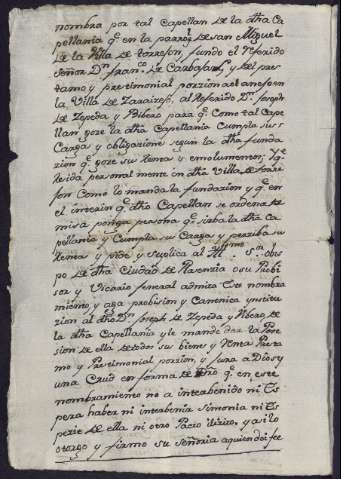 nombra por tal Capellan de la dha Ca
pellania q.e en la parroq.l de san Miguel
de la Villa de torrefon, fundo el Referido
Señor D.n Fran.co de Carbajaal, y del pres
tamo y prestimonial porzion al anesso en
la Villa de al Referido D.n Joseph
de Zepeda y Ribero para q.e Como tal Cape
llan goze la dha Capellania Cumpla sus
Carga y obligazione segun la dha funda
zion q.e goze su Renta y emolumentos; y q.e
Resida personalmente in dha Villa de torre
fon Como lo manda la fundazion y q.e en
el interin q.e dho Capellan se ordena de
misa ponga persona q.e sirba la dha Ca
pellania y Cumpla su Carga y perziba su
Renta y pide y suplica al Ill.mo S.or obis
po de dha Ciudad de Plasenzia o su Probi
sor y Vicario general admita Este nombra
miento, y aga probision y Canonica ynstitu
zion al dho D.n Joseph de Zepeda y Ribero de
la dha Capellania y le mande dar la Pose
sion de ella de todos su bienes y Renta Presta
mo y Prestimonial porzion, y Juro a Dios y
una Cruz en forma de dro q.e en este
nombramiento no a interbenido ni Es
pera haber ni interbenir Simonia ni Es
pezie de ella ni otro Pacto ilizito, y asi lo
otorgo y firmo su Señoria aquien doi fee